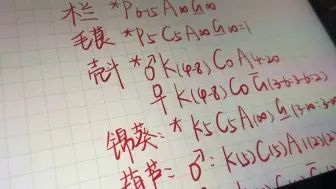 木兰 *P6-15 A∞ G∞
毛茛 *P5 C5 A∞ G∞=1
壳斗 *♂ K(4-8) C0 A4-20
♀ K(4-8) C0 G̅(3-6:3-6:2)
锦葵: * K5 C5 A(∞) G(3-∞:3-∞
葫芦: ♂: K(5) C(5) A1(2)(2)